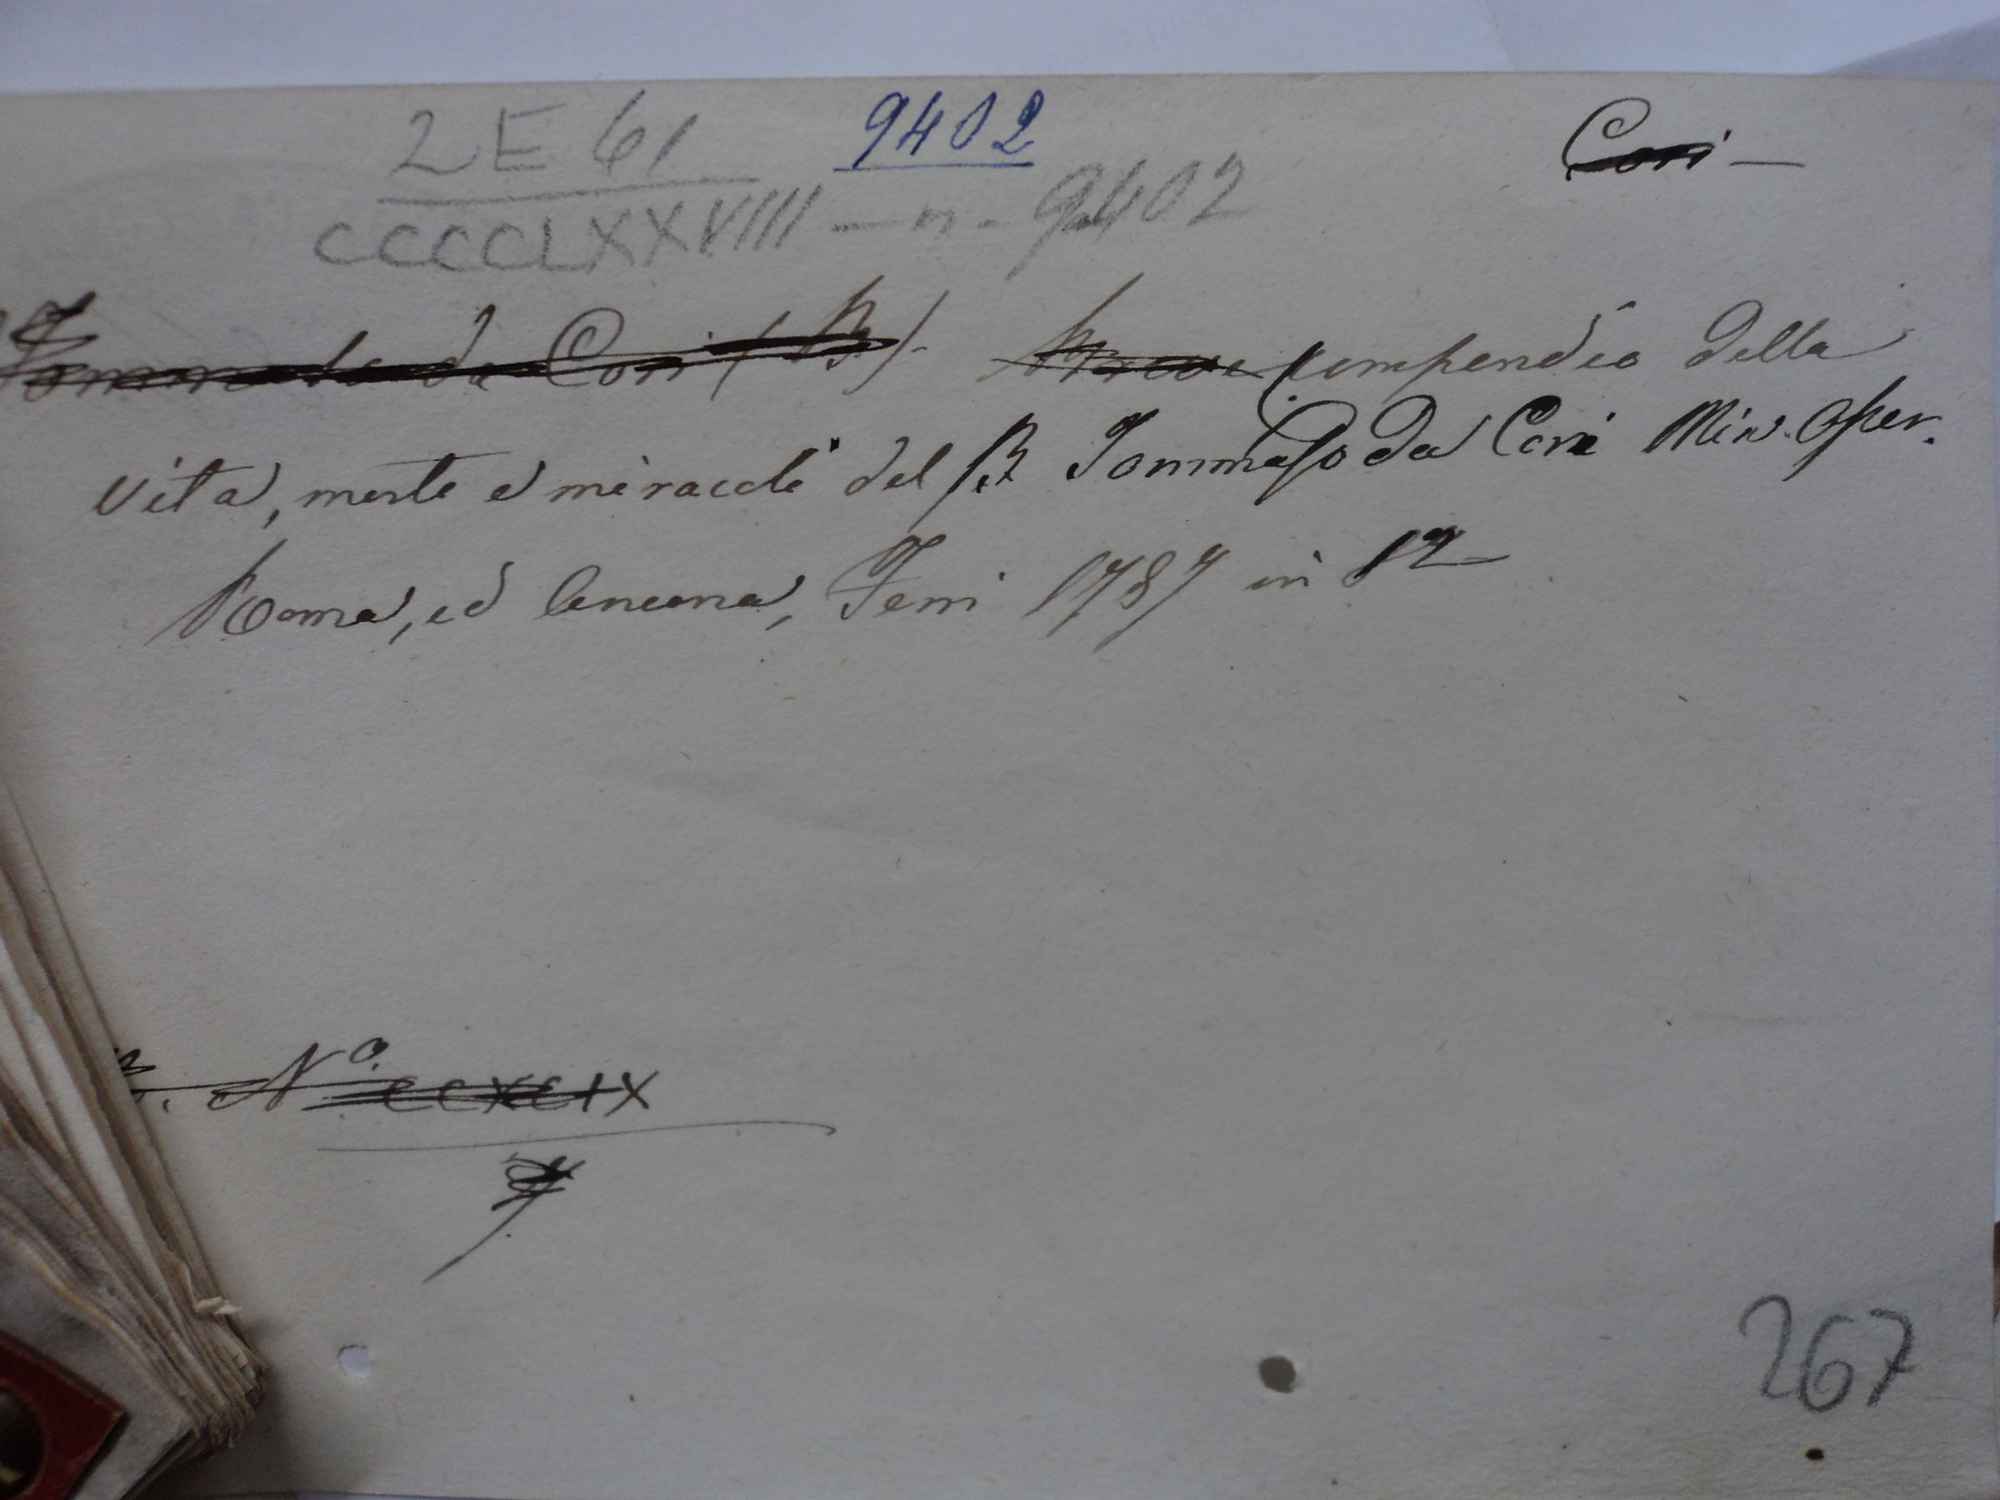 2 E 61 9402 Cori —
CCCCLXXVIII — n. 9402
Tommaso da Cori (B.). Breve Compendio della
vita, morte e miracoli del B. Tommaso da Cori Min. Osser.
Roma, ed Ancona, Ferri 1787 in 12
N.º CCXCIX
267